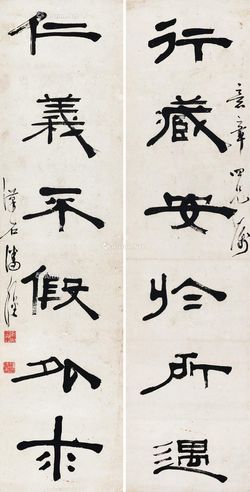 章四兄属
行藏安於所遇
仁義不假外求